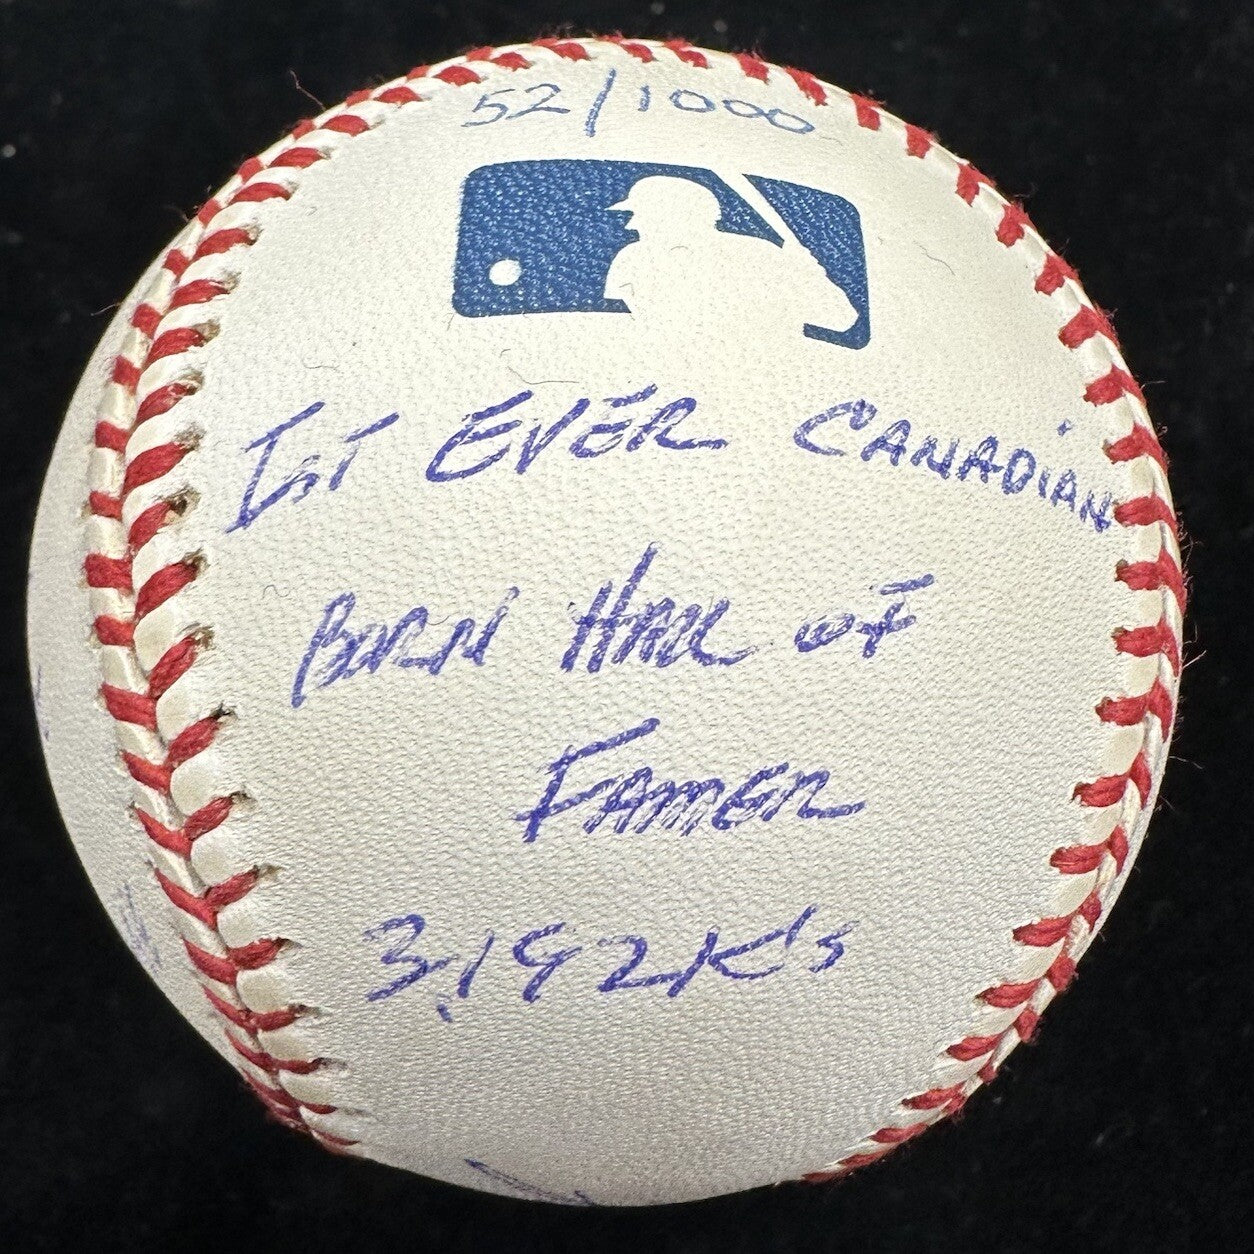 52/1000
1st EVER CANADIAN
BORN HALL OF
FAMER
3,192 K's